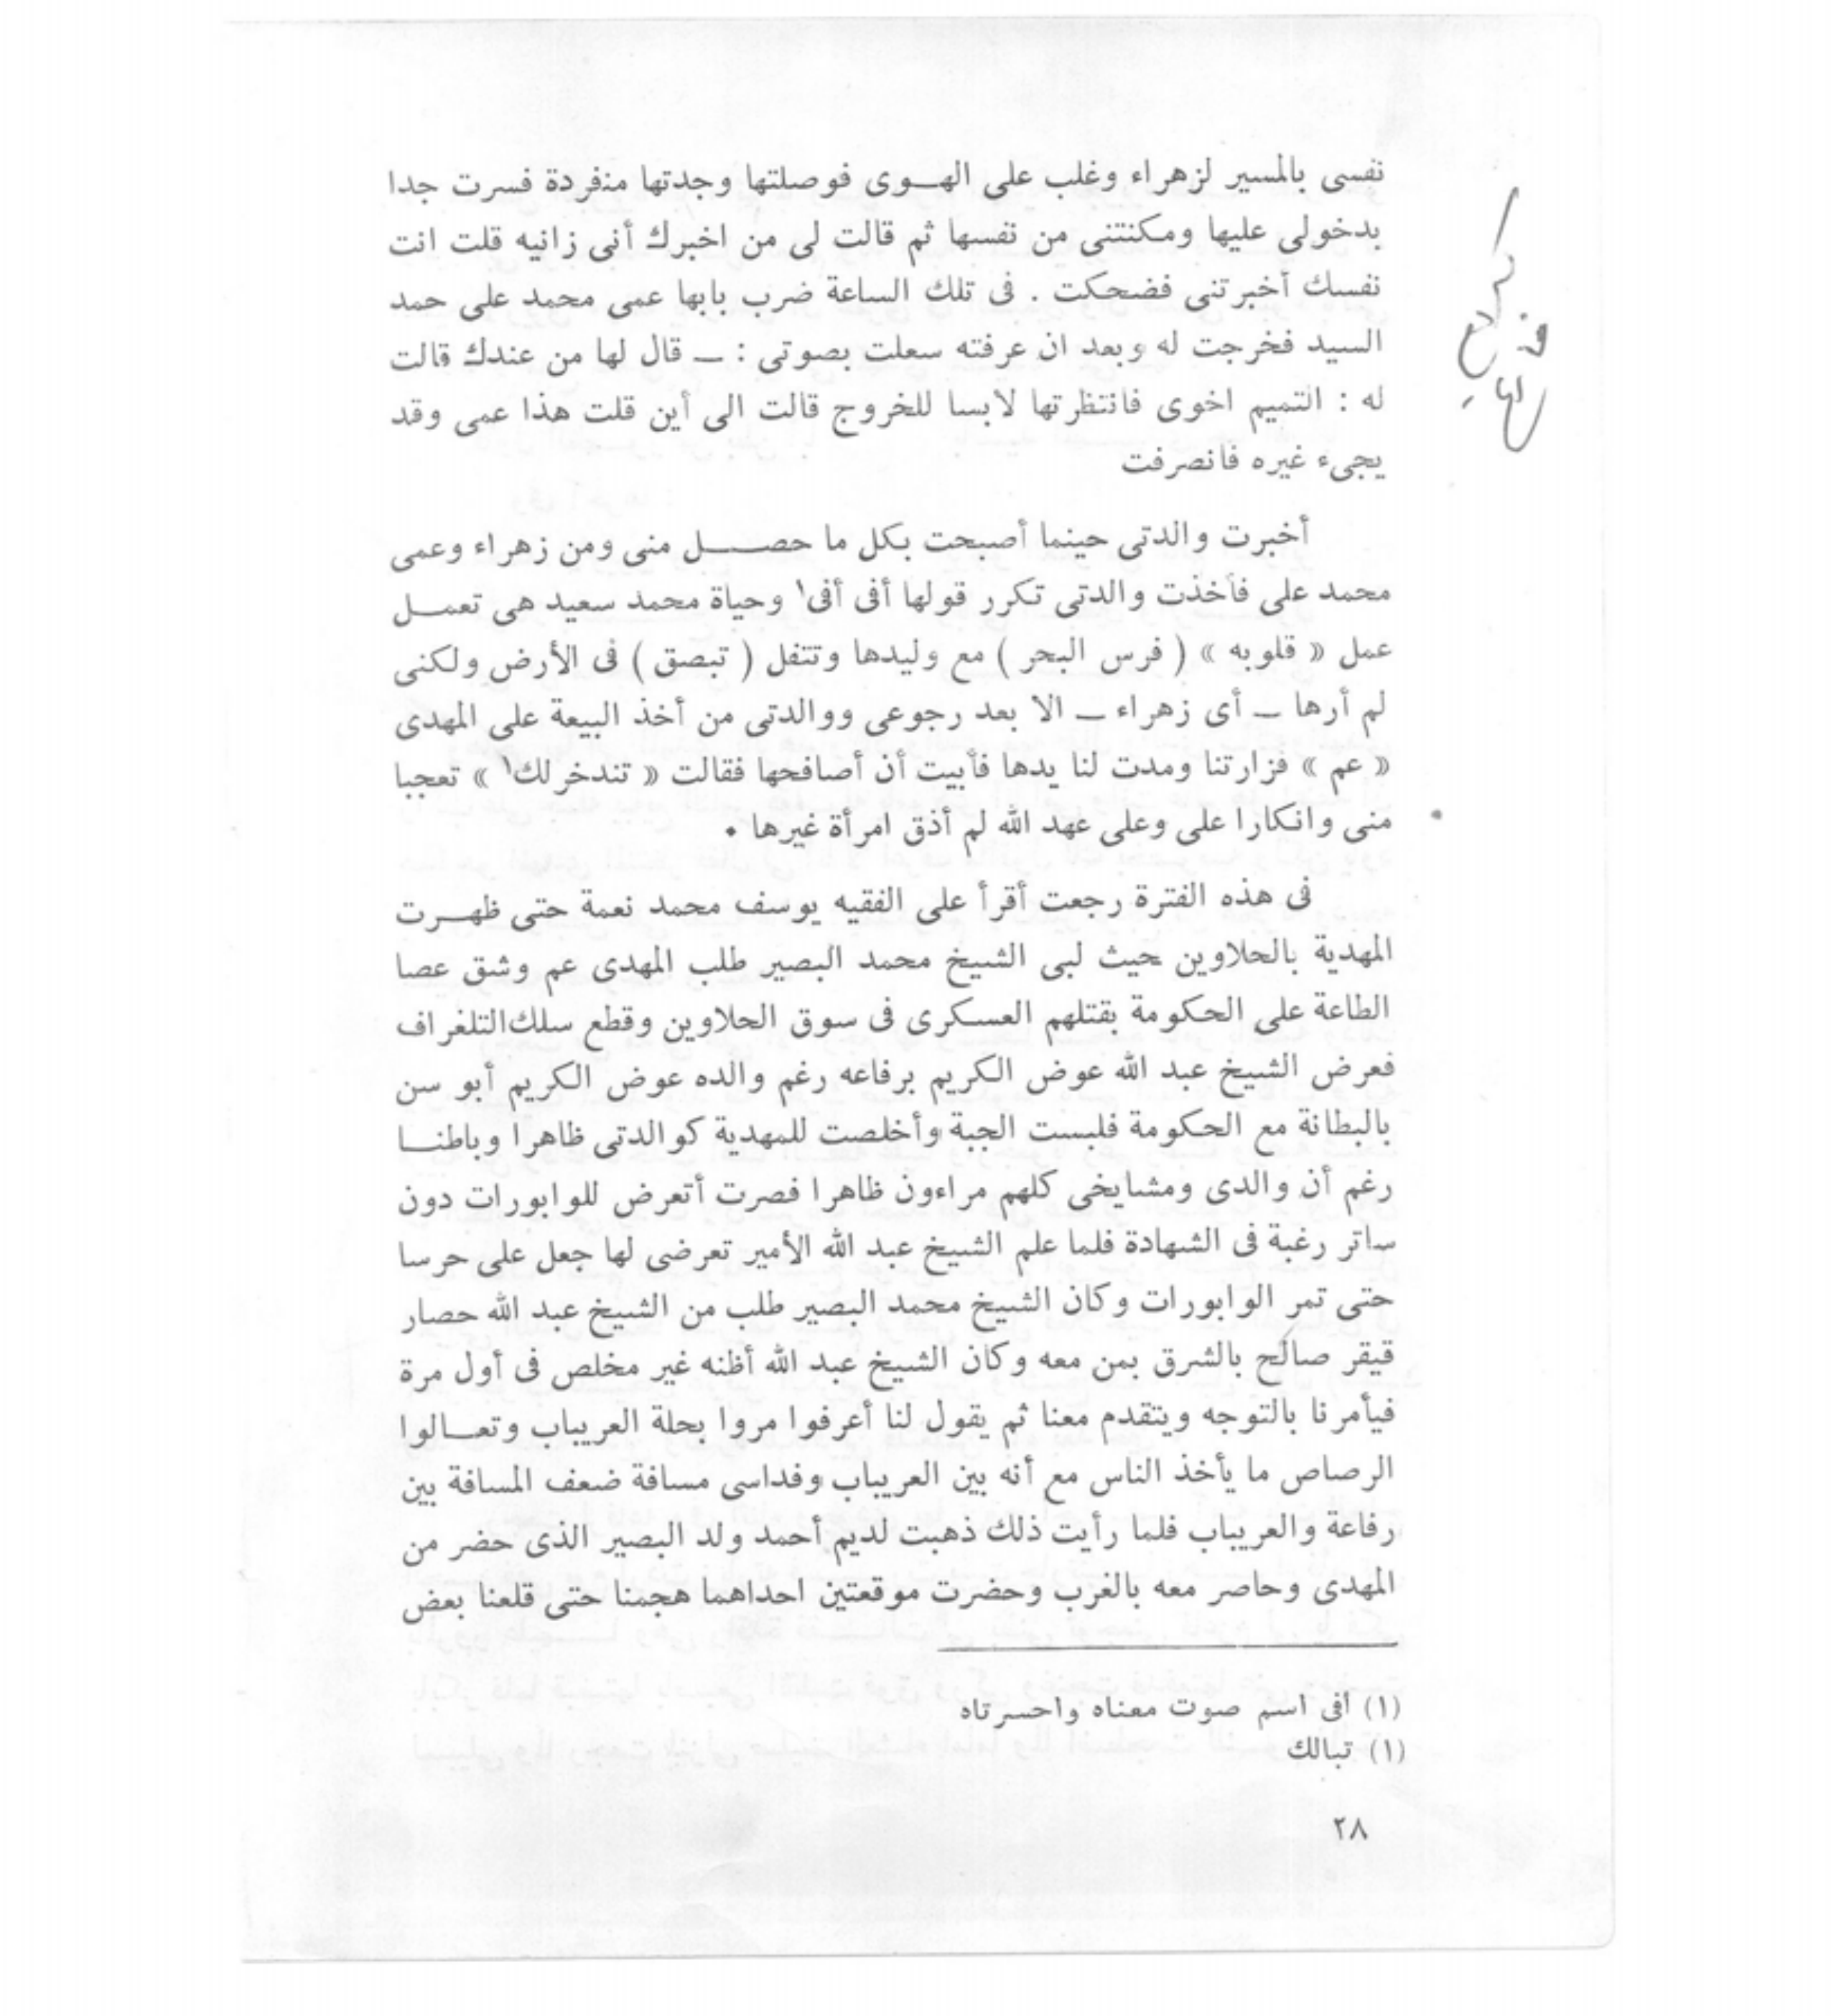 نفسى بالمسير لزهراء وغلب على الهــوى فوصلتها وجدتها منفردة فسرت جدا
بدخولى عليها ومكنتنى من نفسها ثم قالت لى من اخبرك أنى زانيه قلت انت
نفسك أخبرتنى فضحكت . فى تلك الساعة ضرب بابها عمى محمد على حمد
السيد فخرجت له وبعد ان عرفته سعلت بصوتى : ــ قال لها من عندك قالت
له : التميم اخوى فانتظرتها لابسا للخروج قالت الى أين قلت هذا عمى وقد
يجىء غيره فانصرفت
أخبرت والدتى حينما أصبحت بكل ما حصــــل منى ومن زهراء وعمى
محمد على فأخذت والدتى تكرر قولها أفى أفى١ وحياة محمد سعيد هى تعمــل
عمل « قلوبه » ( فرس البحر ) مع وليدها وتتفل ( تبصق ) فى الأرض ولكنى
لم أرها ــ أى زهراء ــ الا بعد رجوعى ووالدتى من أخذ البيعة على المهدى
« عم » فزارتنا ومدت لنا يدها فأبيت أن أصافحها فقالت « تندخر لك١ » تعجبا
منى وانكارا على وعلى عهد الله لم أذق امرأة غيرها •
فى هذه الفترة رجعت أقرأ على الفقيه يوسف محمد نعمة حتى ظهــرت
المهدية بالحلاوين حيث لبى الشيخ محمد البصير طلب المهدى عم وشق عصا
الطاعة على الحكومة بقتلهم العسكرى فى سوق الحلاوين وقطع سلك التلغراف
فعرض الشيخ عبد الله عوض الكريم برفاعه رغم والده عوض الكريم أبو سن
بالبطانة مع الحكومة فلبست الجبة وأخلصت للمهدية كوالدتى ظاهرا وباطنــا
رغم أن والدى ومشايخى كلهم مراءون ظاهرا فصرت أتعرض للوابورات دون
ساتر رغبة فى الشهادة فلما علم الشيخ عبد الله الأمير تعرضى لها جعل على حرسا
حتى تمر الوابورات وكان الشيخ محمد البصير طلب من الشيخ عبد الله حصار
قيقر صالح بالشرق بمن معه وكان الشيخ عبد الله أظنه غير مخلص فى أول مرة
فيأمرنا بالتوجه ويتقدم معنا ثم يقول لنا أعرفوا مروا بحلة العريباب وتعــالوا
الرصاص ما يأخذ الناس مع أنه بين العريباب وفداسى مسافة ضعف المسافة بين
رفاعة والعريباب فلما رأيت ذلك ذهبت لديم أحمد ولد البصير الذى حضر من
المهدى وحاصر معه بالغرب وحضرت موقعتين احداهما هجمنا حتى قلعنا بعض
(١) أفى اسم صوت معناه واحسرتاه
(١) تبالك
٢٨